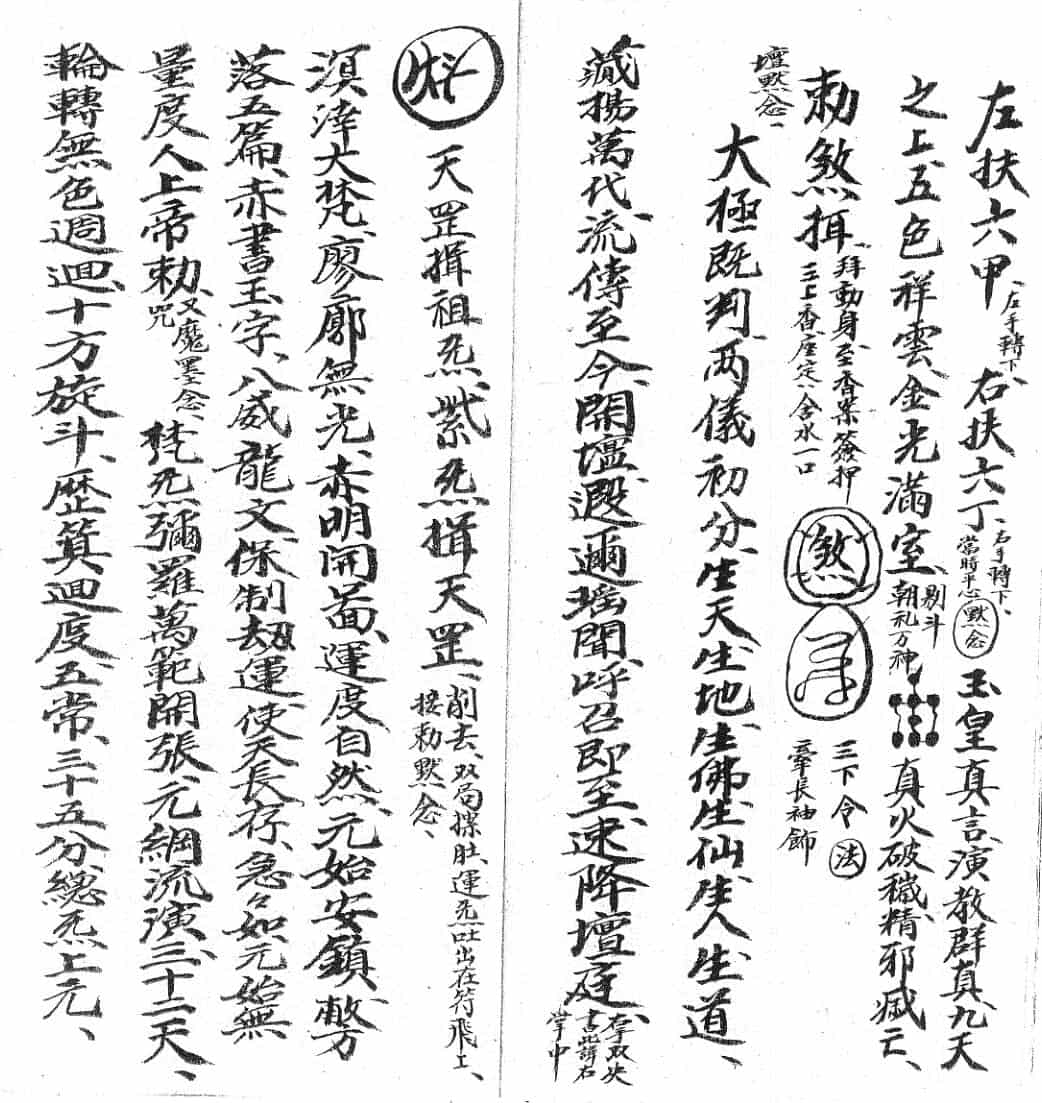 左扶六甲、左手轉下、右扶六丁、右手轉下、當時平心默念玉皇真言、演教群真、九天
之上、五色祥雲、金光滿室、剔斗朝礼万神真火破穢、精邪滅亡、
勅煞揖、拜動身、至香案簽押三上香、座定、含水一口煞三下令法牽長袖飾
壇默念、
大極既判、两儀初分、生天、生地、生佛、生仙、生人、生道、
藏揚萬代、流傳至今、開壇遐邇、瑶聞、呼召即至、速降壇庭、
書此諱右掌中
天罡揖祖炁、紫炁揖天罡、削去、双局、運炁吐出在符飛工、接勅默念、
溟涬大梵、廖廓無光、赤明開啚、運度自然、元始安鎮、敷
落五篇、赤書玉字、八威龍文、保制劫運、使天長存、急々如元始無
量度人上帝勅、又魔墨念、咒梵炁彌羅、萬範開張、元綱流演、三十二天、
輪轉無色、週迴十方、旋斗、歷箕、迴度五常、三十五分、總炁上元、